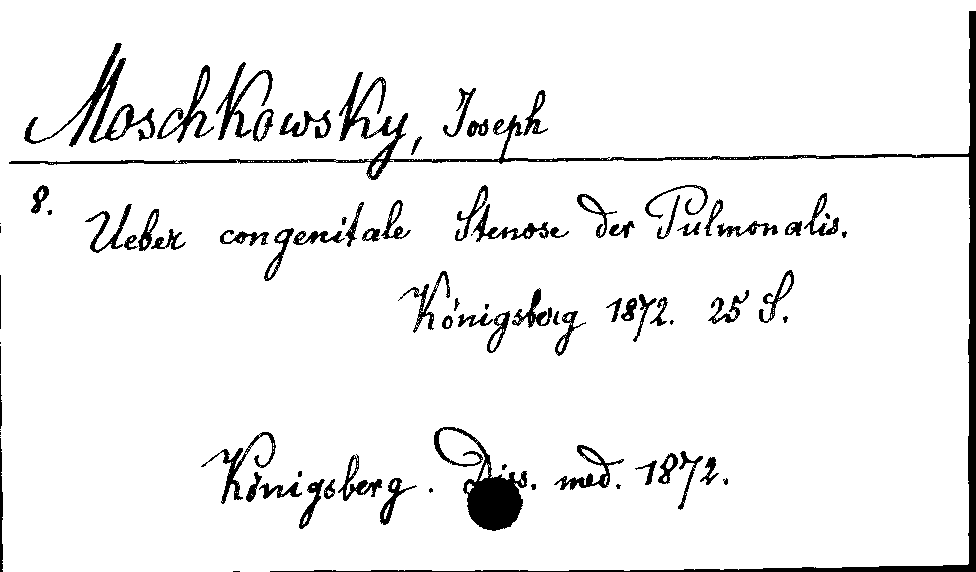 Moschkowsky, Joseph
8.
Ueber congenitale Stenose der Pulmonalis.
Königsberg 1872. 25 S.
Königsberg. Diss. med. 1872.